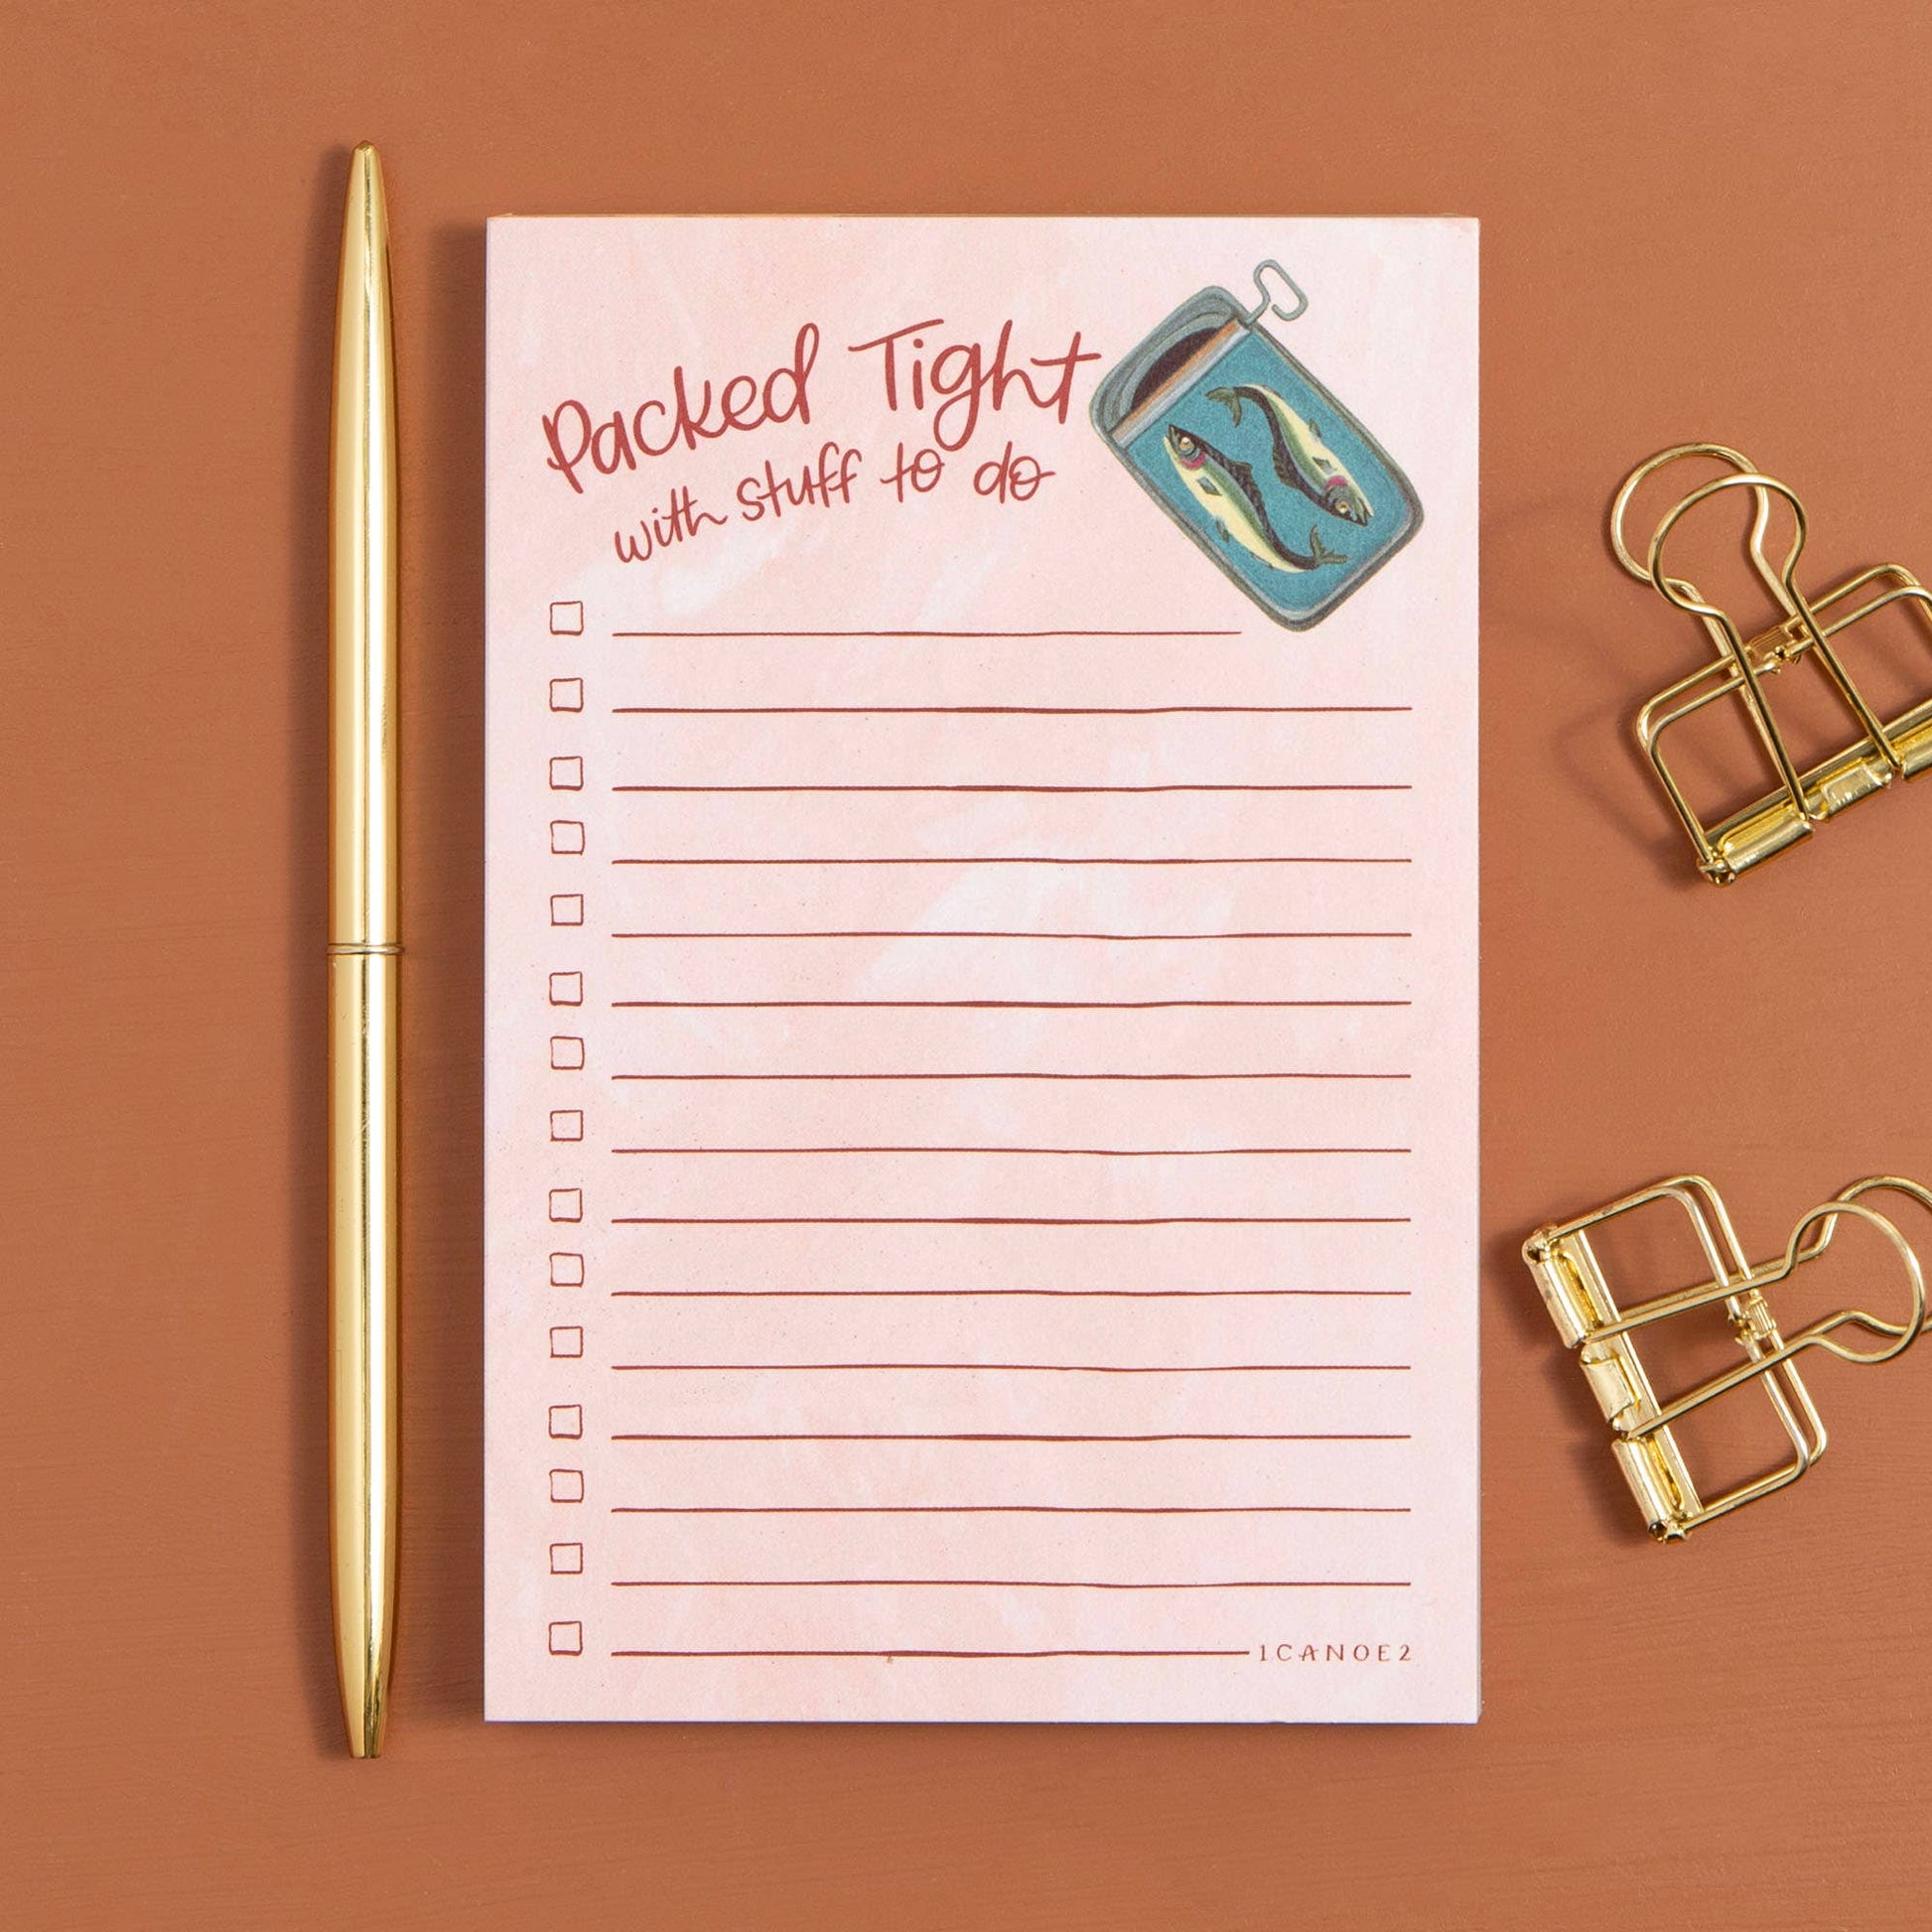 Packed Tight
with stuff to do
1CANOE2